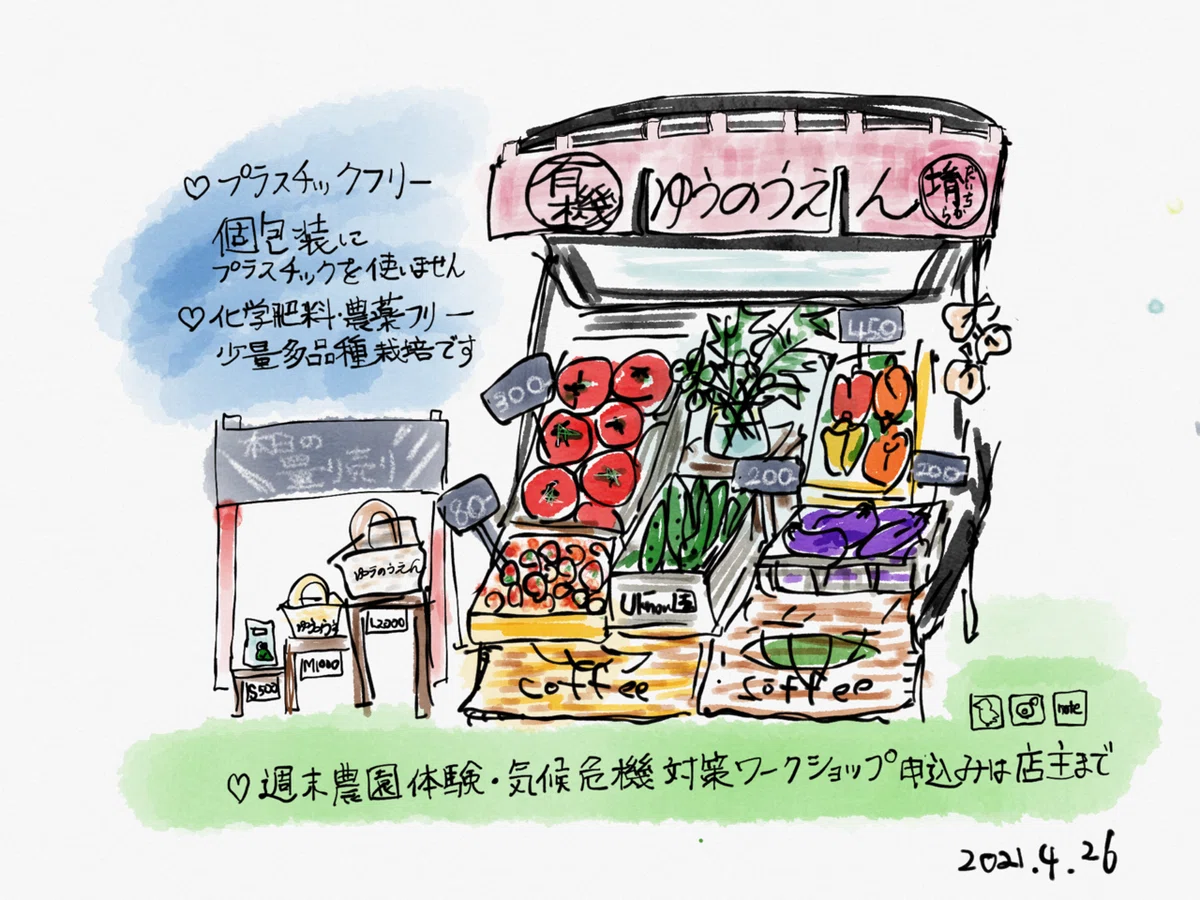 ♡プラスチックフリー
個包装に
プラスチックを使いません
♡化学肥料・農薬フリー
少量多品種栽培です
有機
ゆうのうえん
だいちから
450
300
200
200
80
本日の
量り売り
ゆうのうえん
L2000
M1000
S500
coffee
coffee
note
♡週末農園体験・気候危機対策ワークショップ申込みは店主まで
2021.4.26